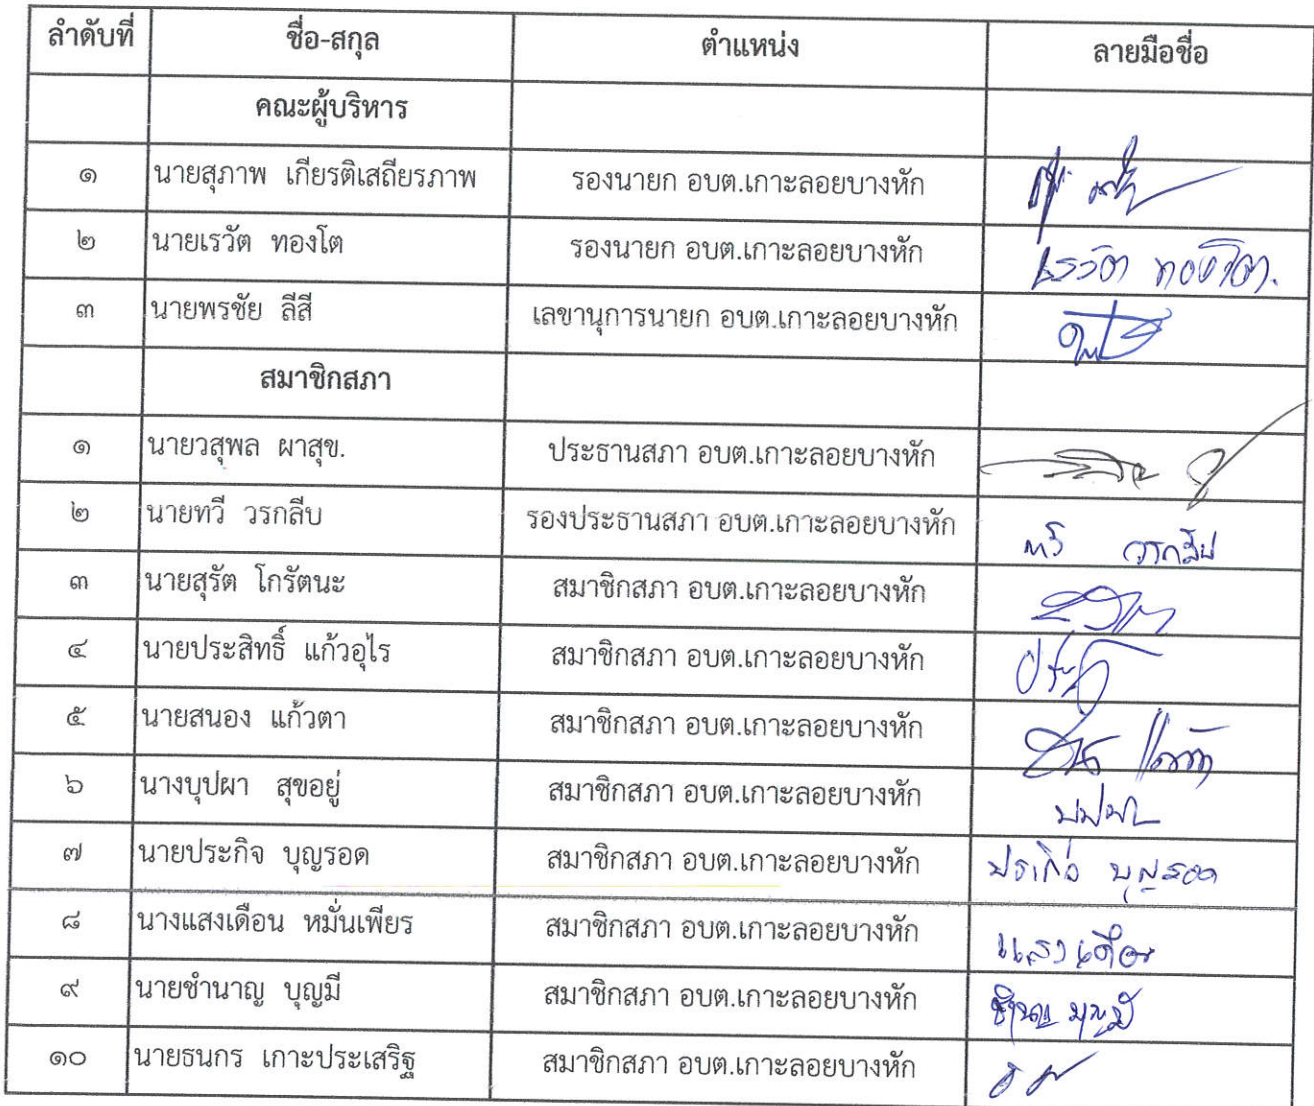 ลำดับที่ ชื่อ-สกุล ตำแหน่ง ลายมือชื่อ
คณะผู้บริหาร
๑ นายสุภาพ เกียรติเสถียรภาพ รองนายก อบต.เกาะลอยบางหัก
๒ นายเรวัต ทองโต รองนายก อบต.เกาะลอยบางหัก เรวัต ทองโต.
๓ นายพรชัย ลีสี เลขานุการนายก อบต.เกาะลอยบางหัก
สมาชิกสภา
๑ นายวสุพล ผาสุข. ประธานสภา อบต.เกาะลอยบางหัก
๒ นายทวี วรกลีบ รองประธานสภา อบต.เกาะลอยบางหัก ทวี วรกลีบ
๓ นายสุรัต โกรัตนะ สมาชิกสภา อบต.เกาะลอยบางหัก
๔ นายประสิทธิ์ แก้วอุไร สมาชิกสภา อบต.เกาะลอยบางหัก
๕ นายสนอง แก้วตา สมาชิกสภา อบต.เกาะลอยบางหัก
๖ นางบุปผา สุขอยู่ สมาชิกสภา อบต.เกาะลอยบางหัก บุปผา
๗ นายประกิจ บุญรอด สมาชิกสภา อบต.เกาะลอยบางหัก ประกิจ บุญรอด
๘ นางแสงเดือน หมั่นเพียร สมาชิกสภา อบต.เกาะลอยบางหัก แสงเดือน
๙ นายชำนาญ บุญมี สมาชิกสภา อบต.เกาะลอยบางหัก ชำนาญ บุญมี
๑๐ นายธนกร เกาะประเสริฐ สมาชิกสภา อบต.เกาะลอยบางหัก